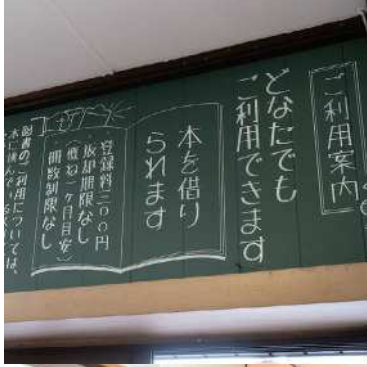 ご利用案内
どなたでも
ご利用できます
本を借り
られます
登録料三〇〇円
・返却期限なし
(概ね一ヶ月目安)
冊数制限なし
図書のご利用については、
本に挟んで